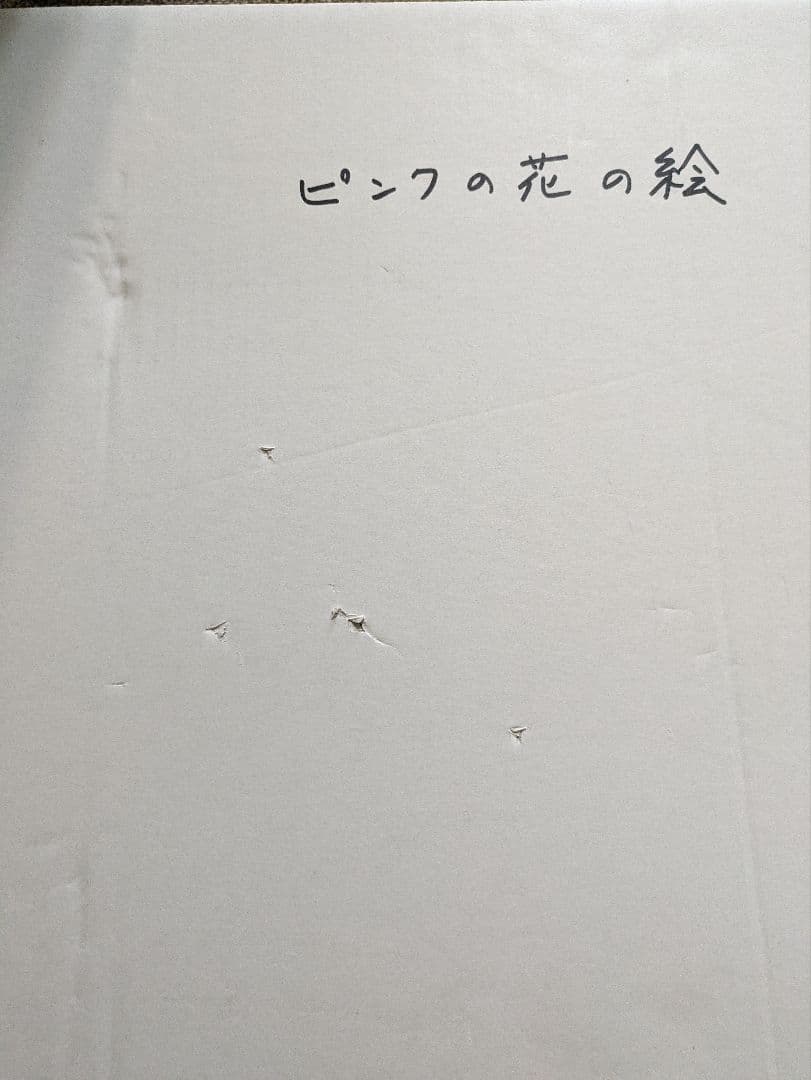 ピンクの花の絵